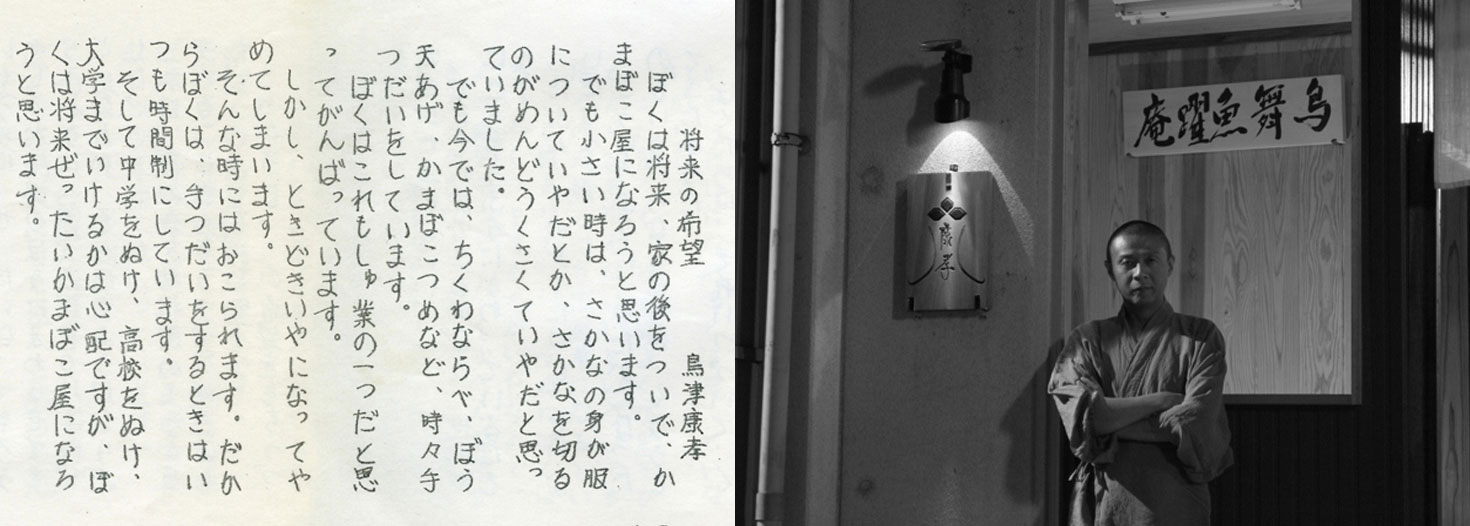 将来の希望　鳥津康孝
ぼくは将来、家の後をついで、か
まぼこ屋になろうと思います。
でも小さい時は、さかなの身が服
についていやだとか、さかなを切る
のがめんどうくさくていやだと思っ
ていました。
でも今では、ちくわならべ、ぼう
天あげ、かまぼこつめなど、時々手
つだいをしています。
ぼくはこれもしゅ業の一つだと思
ってがんばっています。
しかし、ときどきいやになってや
めてしまいます。
そんな時にはおこられます。だか
らぼくは、手つだいをするときはい
つも時間制にしています。
そして中学をぬけ、高校をぬけ、
大学までいけるかは心配ですが、ぼ
くは将来ぜったいかまぼこ屋になろ
うと思います。
康孝
鳥舞魚躍庵